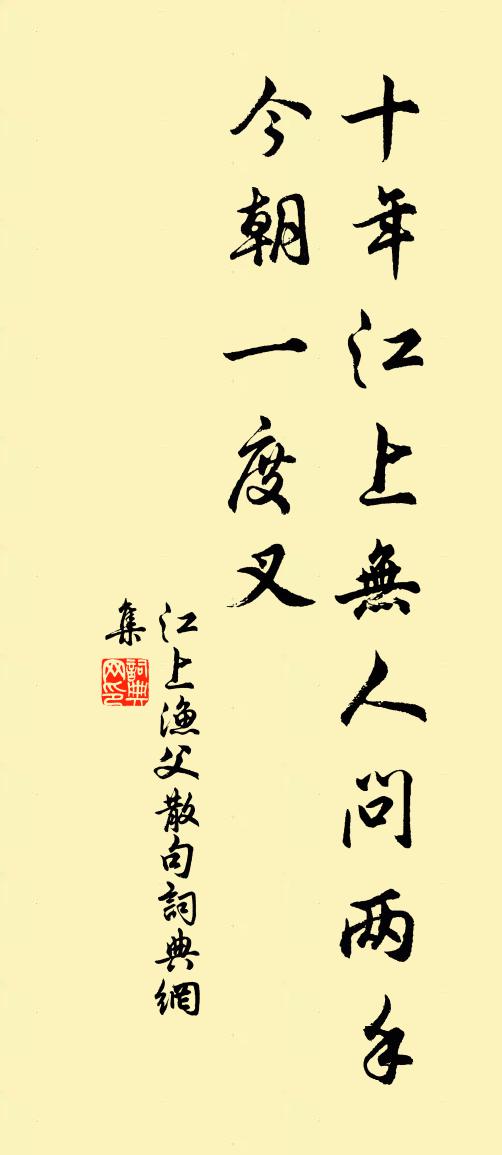 十年江上無人問两手
今朝一度叉
江上漁父散句詞典網
集
詞典
网印